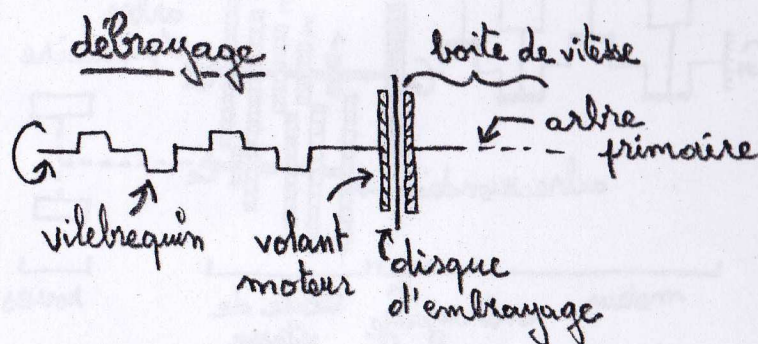 débrayage
boite de vitesse
arbre
primaire
vilebrequin
volant
moteur
disque
d'embrayage